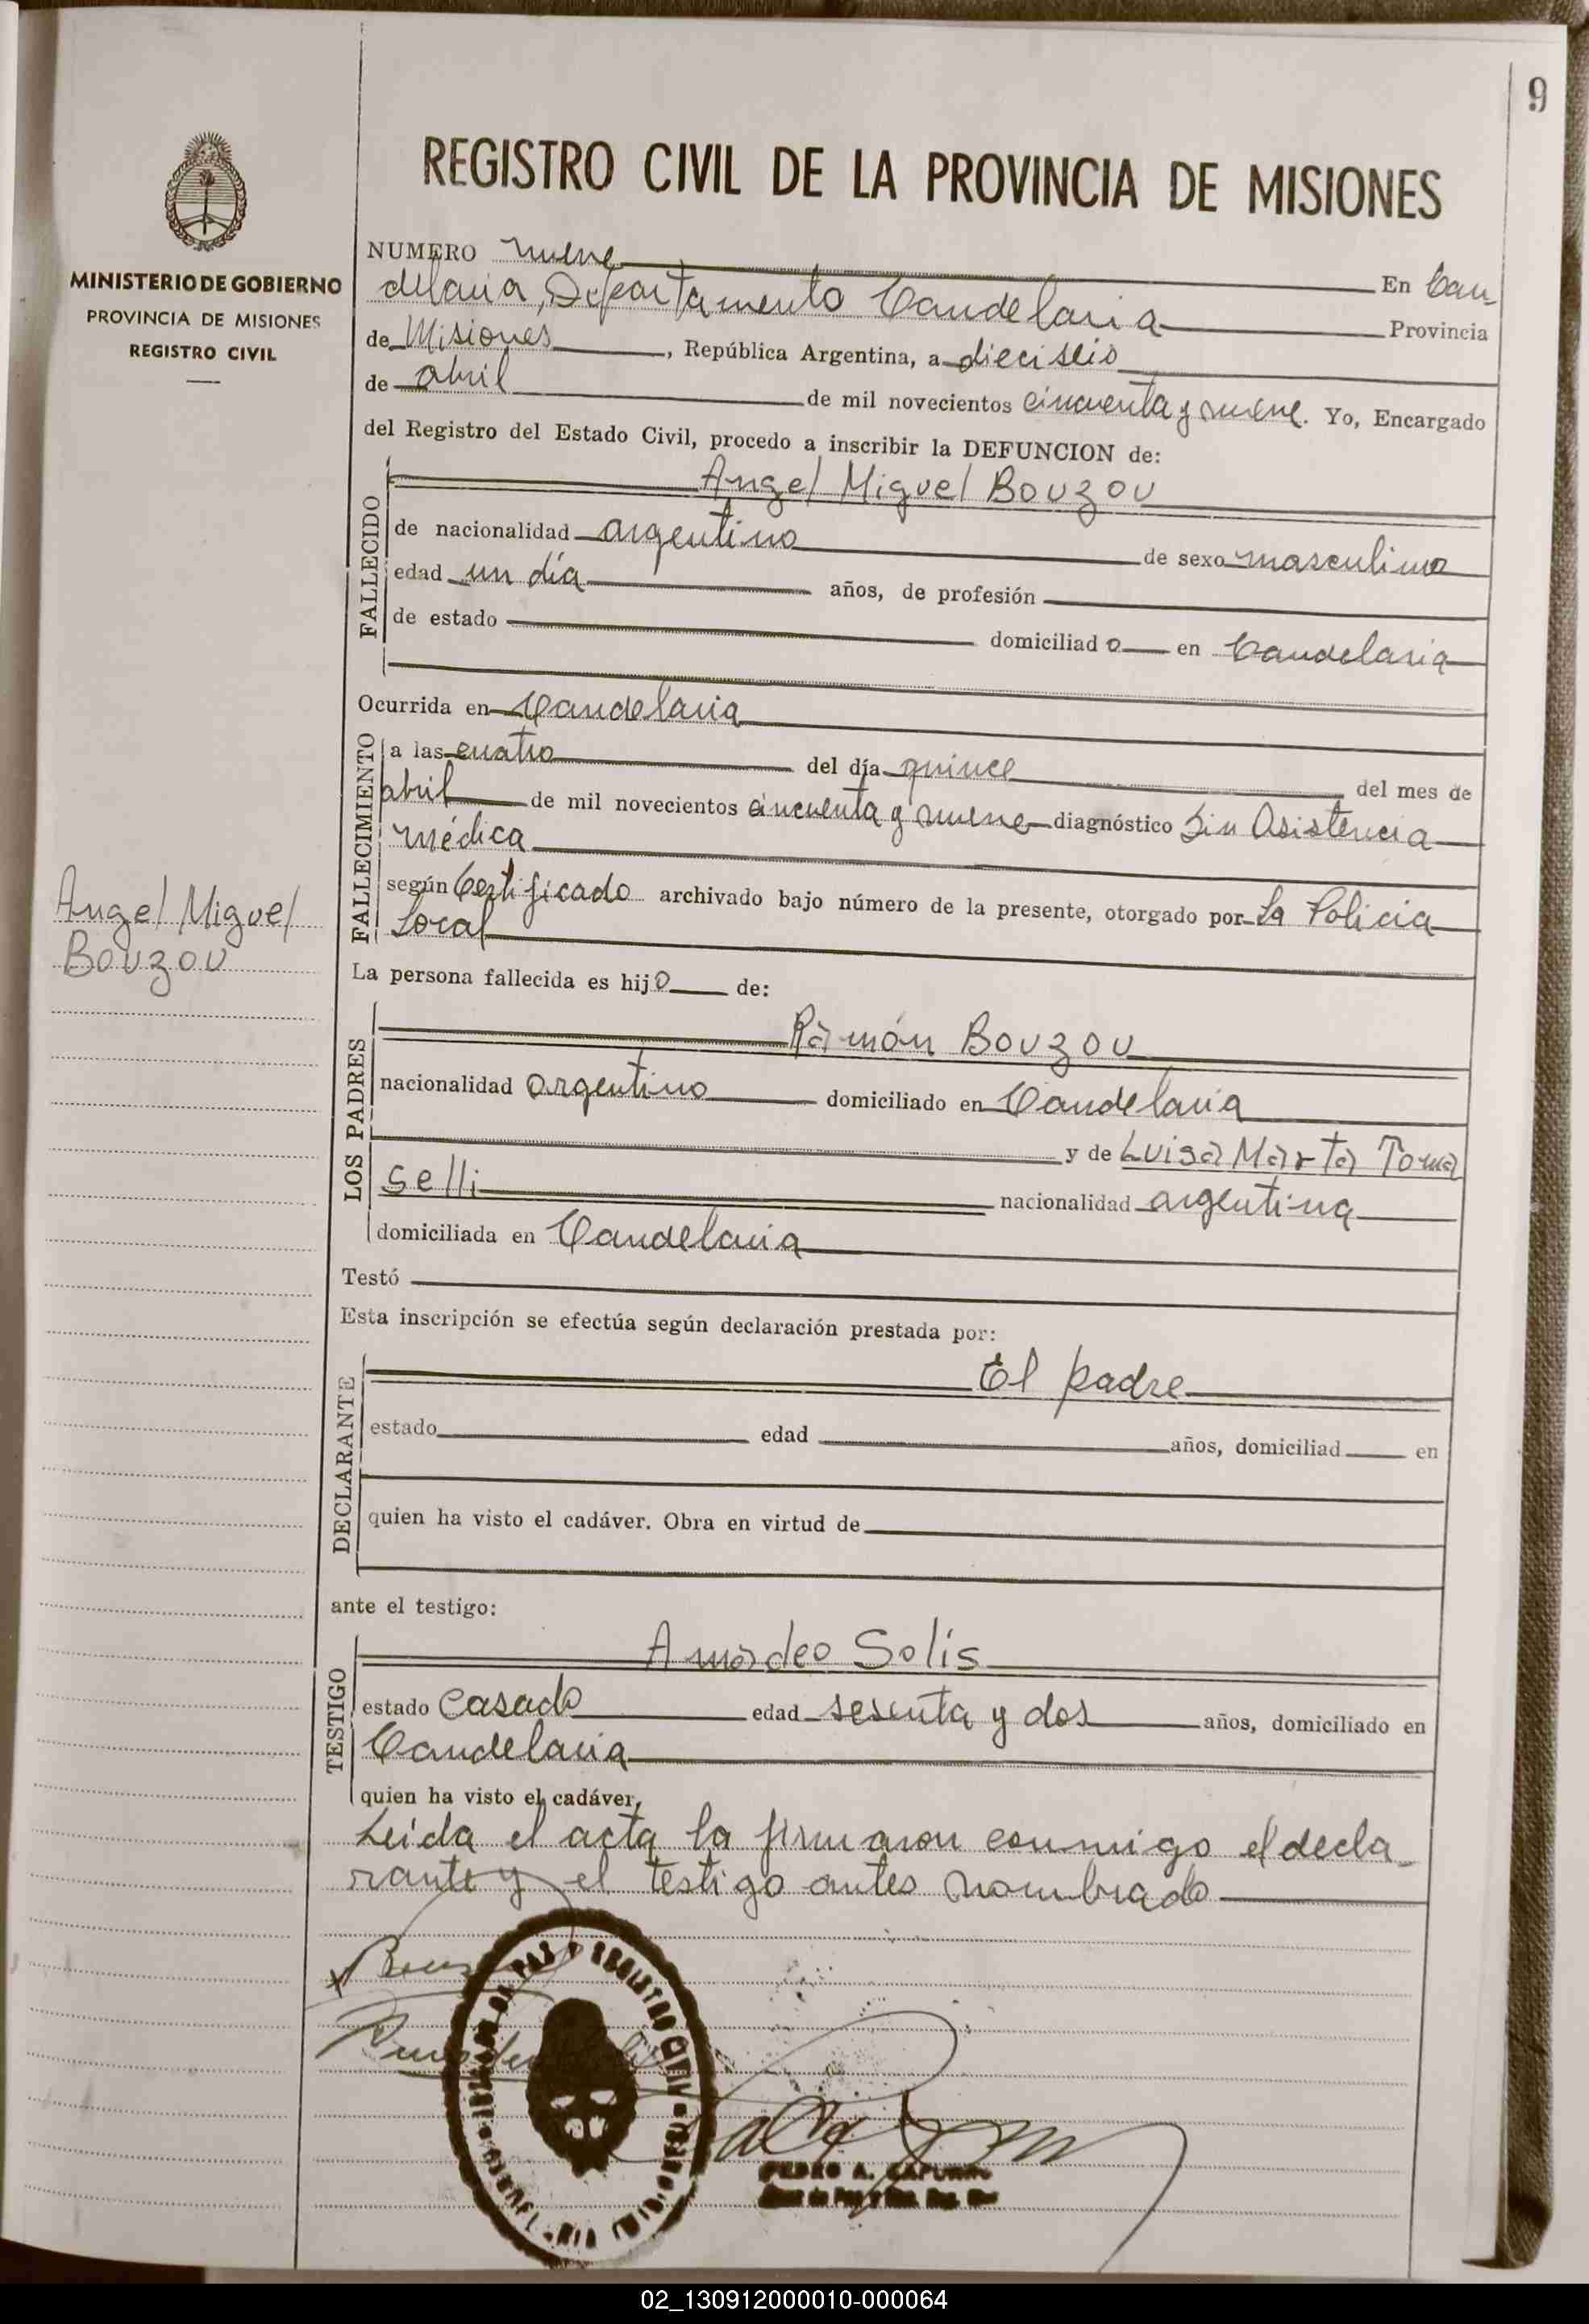 9
MINISTERIO DE GOBIERNO
PROVINCIA DE MISIONES
REGISTRO CIVIL
Angel Miguel
Bouzou
REGISTRO CIVIL DE LA PROVINCIA DE MISIONES
NUMERO nueve En Can-
delaria, Departamento Candelaria Provincia
de Misiones, República Argentina, a dieciseis
de abril de mil novecientos cincuenta y nueve. Yo, Encargado
del Registro del Estado Civil, procedo a inscribir la DEFUNCION de:
FALLECIDO
Angel Miguel Bouzou
de nacionalidad argentino de sexo masculino
edad un día años, de profesión
de estado domiciliado en Candelaria
Ocurrida en Candelaria
FALLECIMIENTO
a las cuatro del día quince del mes de
abril de mil novecientos cincuenta y nueve diagnóstico Sin Asistencia
médica
según Certificado archivado bajo número de la presente, otorgado por La Policia
Local
La persona fallecida es hijo de:
LOS PADRES
Ramón Bouzou
nacionalidad argentino domiciliado en Candelaria
y de Luisa Marta Toma
selli nacionalidad argentina
domiciliada en Candelaria
Testó
Esta inscripción se efectúa según declaración prestada por:
DECLARANTE
El padre
estado edad años, domiciliad en
quien ha visto el cadáver. Obra en virtud de
ante el testigo:
TESTIGO
Amadeo Solís
estado casado edad sesenta y dos años, domiciliado en
Candelaria
quien ha visto el cadáver,
Leida el acta la firmaron conmigo el decla-
rante y el testigo antes nombrado
PEDRO A.
02_130912000010-000064